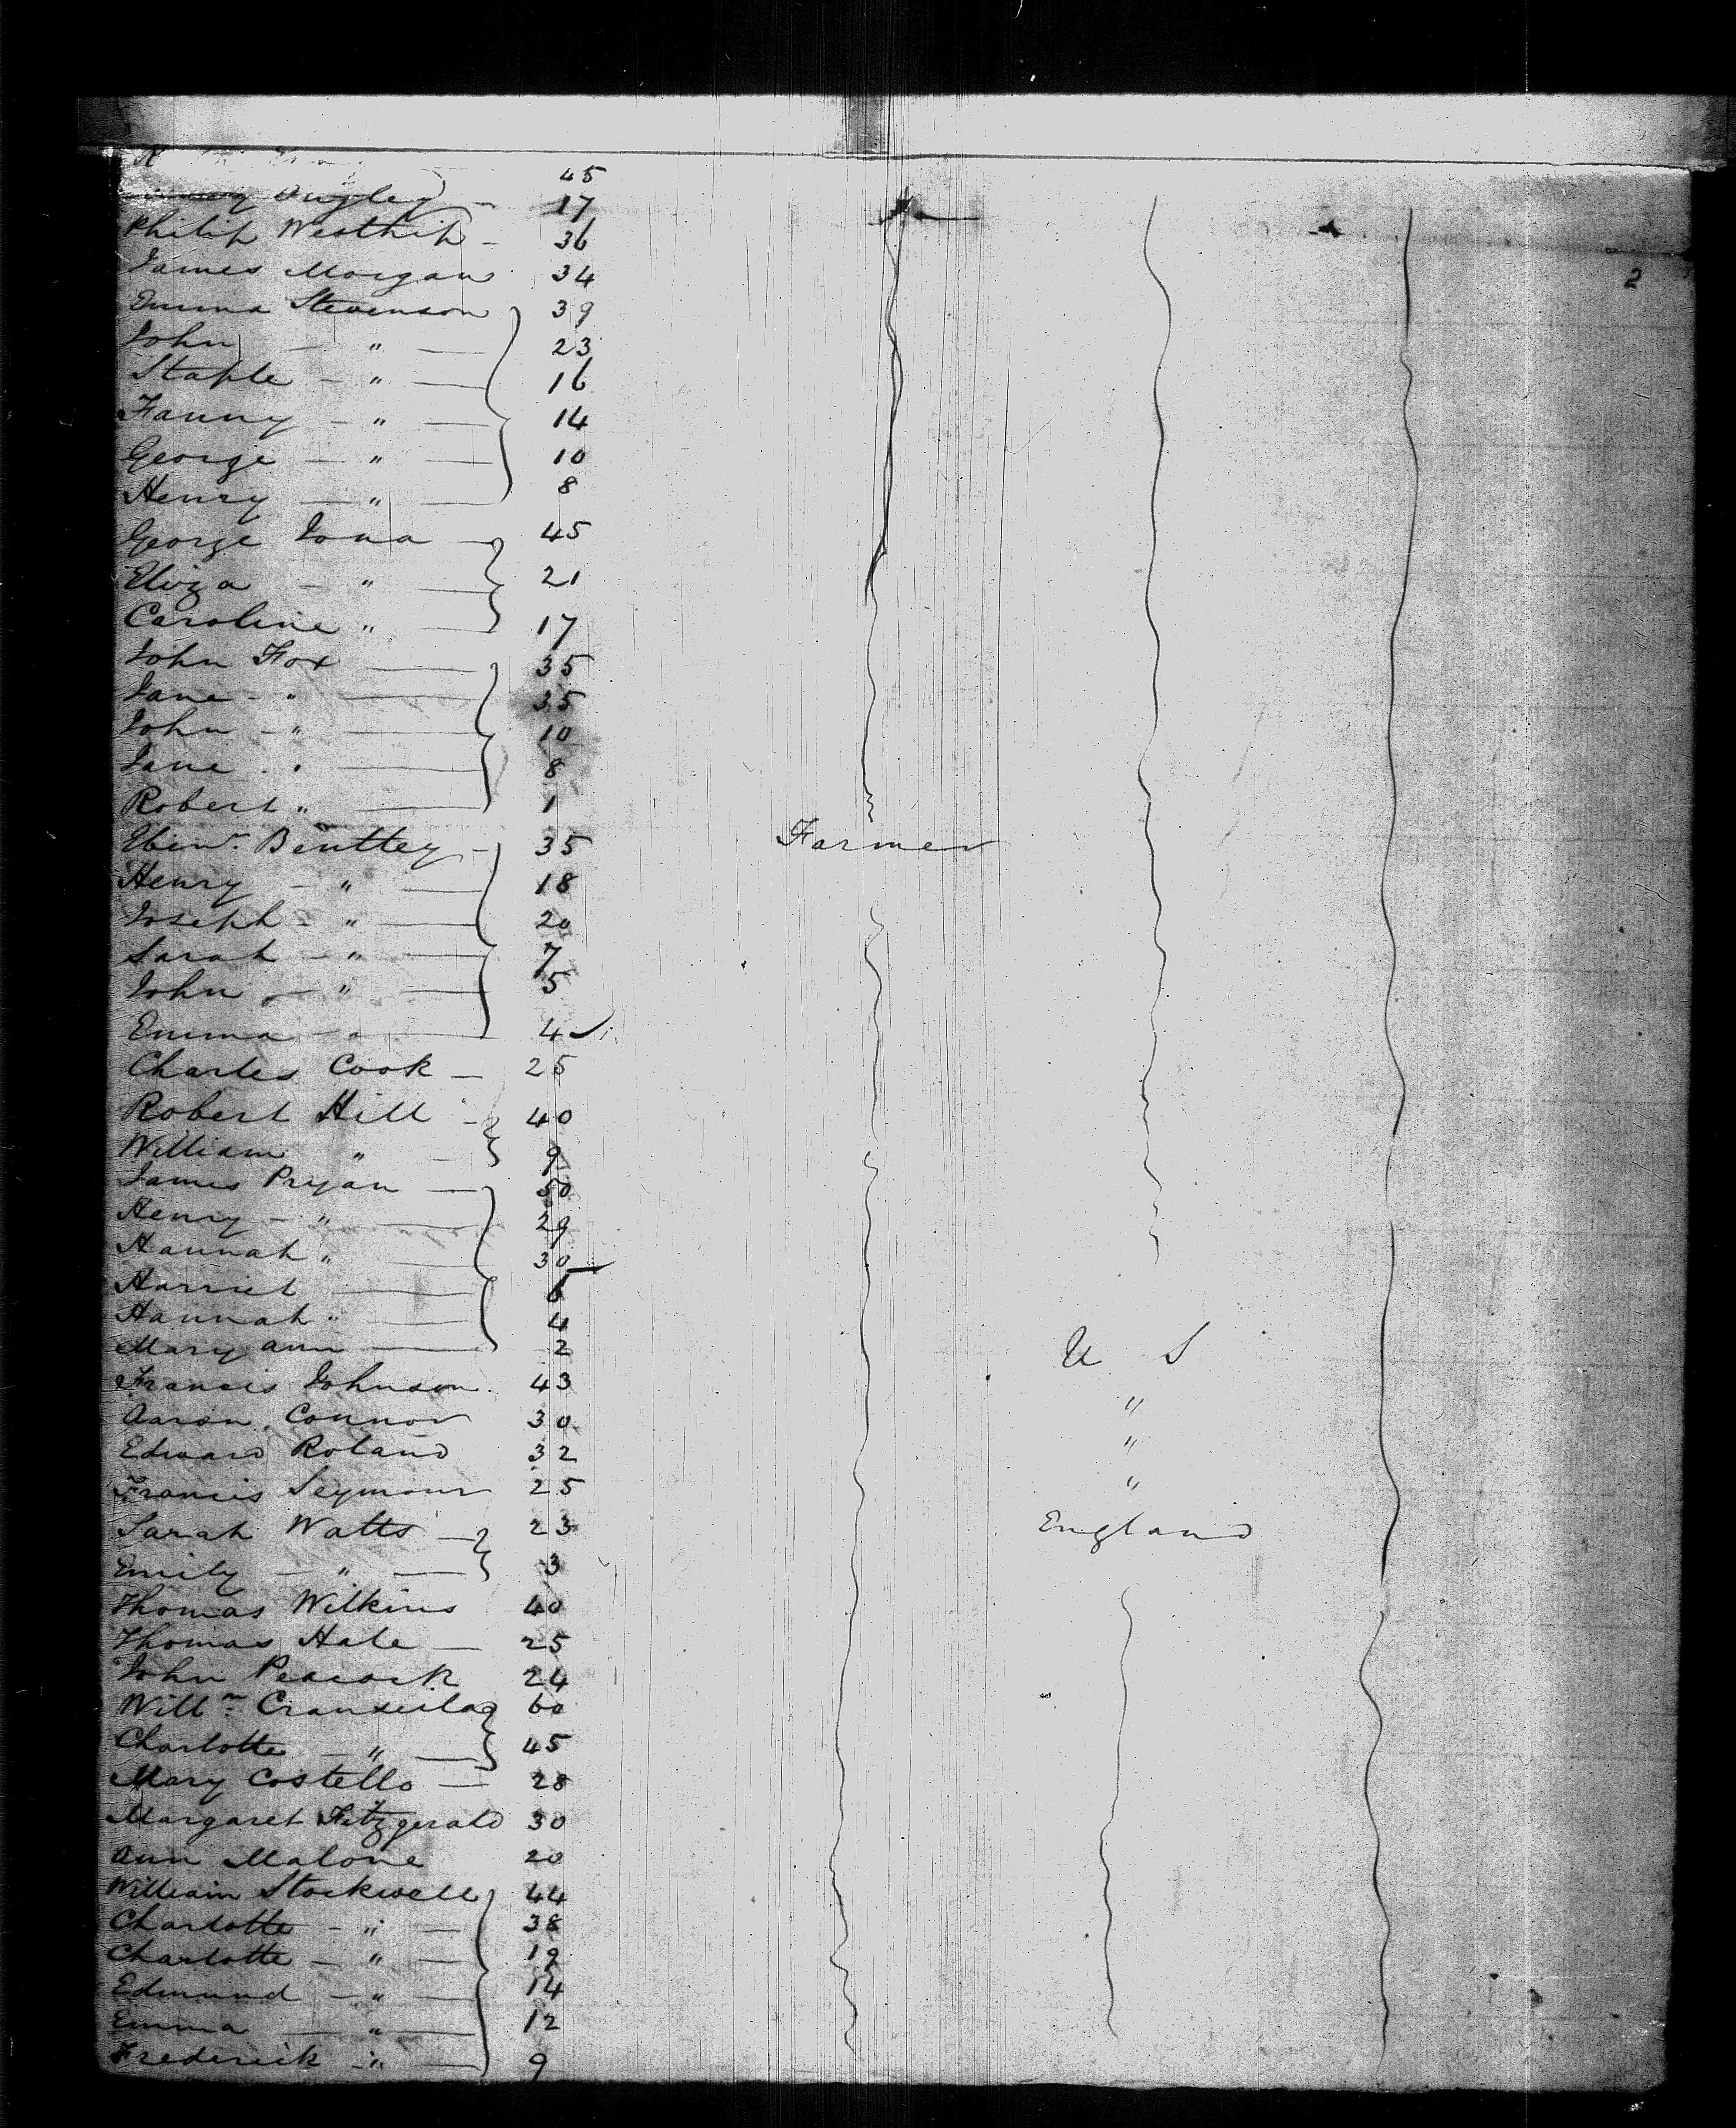 45
Ingley 17
Philip Westhip - 36
James Morgan 34
2
Emma Stevenson 39
John — " — 23
Staple — " — 16
Fanny — " — 14
George — " — 10
Henry — " — 8
George Iona — 45
Eliza — " — 21
Caroline " — 17
John Fox — 35
Jane - " — 35
John - " — 10
Jane " — 8
Robert " — 1
Ebenr. Bentley - 35 Farmer
Henry — " — 18
Joseph - " — 20
Sarah — " — 7
John — " — 5
Emma — " — 4
Charles Cook — 25
Robert Hill - 40
William " — 9
James Pryan — 50
Henry — " — 29
Hannah " — 30
Harriet — 6
Hannah " — 4
Mary Ann — 2 U S
Francis Johnson 43 "
Aaron Connor 30 "
Edward Roland 32 "
Francis Seymour 25
Sarah Watts — 23 England
Emily — " — 3
Thomas Wilkins 40
Thomas Hale — 25
John Peacock 24
Willm. 60
Charlotte — " — 45
Mary Costello — 28
Margaret Fitzgerald 30
Ann Malone 20
William Stockwell 44
Charlotte - " — 38
Charlotte — " — 19
Edmund — " — 14
Emma — " — 12
Frederick - " — 9